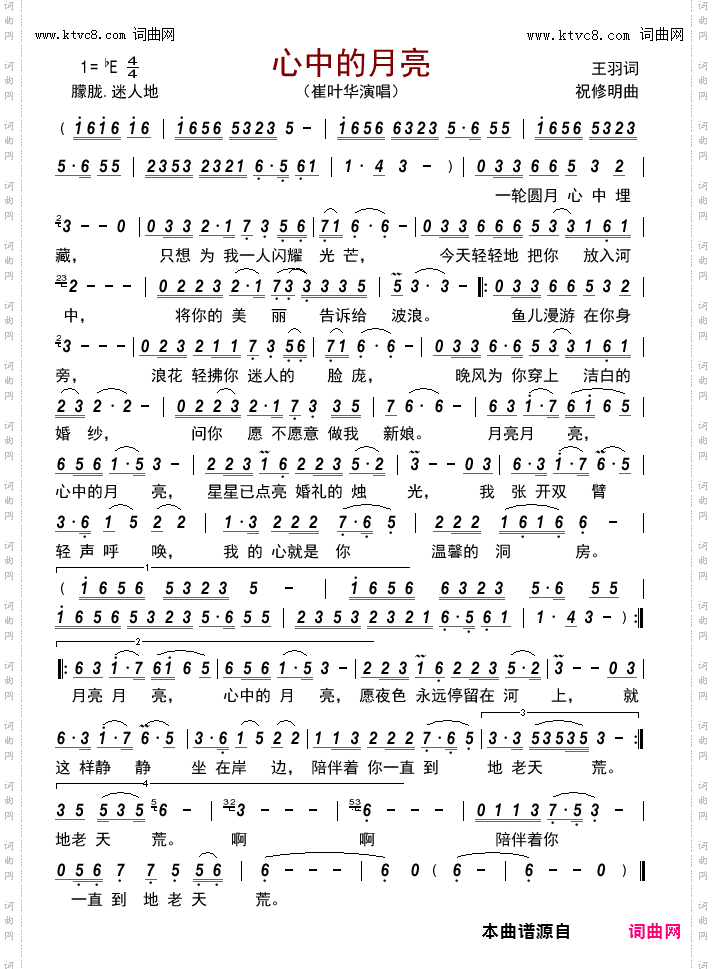 www.ktvc8.com 词曲网
www.ktvc8.com 词曲网
心中的月亮
1=♭E 4/4
王羽词
朦胧.迷人地
（崔叶华演唱）
祝修明曲
( 1616 16 | 1656 5323 5 - | 1656 6323 5·6 55 | 1656 5323 |
5·6 55 | 2353 2321 6·5 61 | 1·4 3 - ) | 0 33 66 5 3 2 |
一轮圆月 心 中 埋
2 3 - - 0 | 0 33 2·1 7 3 56 | 71 6·6 - | 0 33 6665 33 161 |
藏， 只想 为 我一人闪耀 光 芒， 今天轻轻地 把你 放入河
23 2 - - - | 0 223 2·1 7333335 | 5 3·3 - ‖: 0 33 66 532 |
中， 将你的 美 丽 告诉给 波浪。 鱼儿漫游 在你身
2 3 - - - | 0 23 2117 3 56 | 71 6·6 - | 0 33 6·653 3161 |
旁， 浪花 轻拂你 迷人的 脸 庞， 晚风为 你穿上 洁白的
23 2·2 - | 0 223 2·17 3 35 | 7 6·6 - | 63 1·7 6165 |
婚 纱， 问你 愿 不愿意 做我 新娘。 月亮月 亮，
656 1·5 3 - | 223 16 223 5·2 | 3 - - 03 | 6·3 1·7 6·5 |
心中的月 亮， 星星已点亮 婚礼的 烛 光， 我 张 开双 臂
3·6 1 5 2 2 | 1·3 222 7·6 5 | 222 1616 6 - |
轻 声 呼 唤， 我 的 心就是 你 温馨的 洞 房。
1
( 1656 5323 5 - | 1656 6323 5·6 55 |
1656 5323 5·6 55 | 2353 2321 6·5 61 | 1·4 3 - ) :‖
2
‖: 63 1·7 6165 | 656 1·5 3 - | 223 16 223 5·2 | 3 - - 03 |
月亮 月 亮， 心中的 月 亮， 愿夜色 永远停留在 河 上， 就
3
6·3 1·7 6·5 | 3·6 15 22 | 113 222 7·6 5 | 3·3 53535 3 - :‖
这 样静 静 坐 在岸 边， 陪伴着 你一直 到 地 老天 荒。
4
35 535 5 6 - | 32 3 - - - | 53 6 - - - | 0 113 7·5 3 |
地老 天 荒。 啊 啊 陪伴着你
0 56 7 7 5 56 | 6 - - - | 6 0 ( 6 - | 6 - - 0 ) ‖
一直 到 地 老 天 荒。
本曲谱源自 词曲网